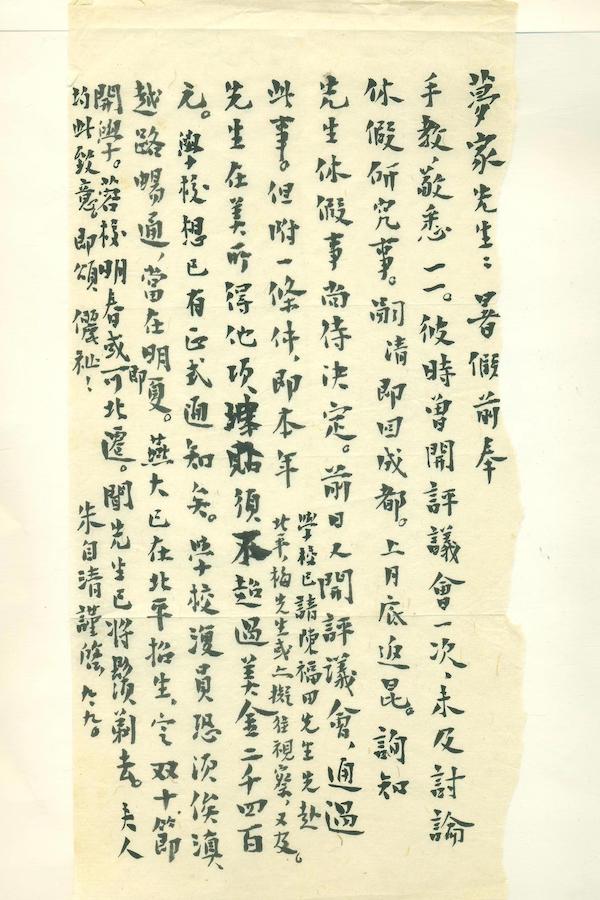 夢家先生：暑假前奉
手教，敬悉一一。彼時曾開評議會一次，未及討論
休假研究事。嗣清即回成都。上月底返昆。詢知
先生休假事尚待決定。前日又開評議會，通過
此事。但附一條件，即本年
學校已請陳福田先生先赴
北平，梅先生或亦擬往視察，又及。
先生在美所得他項津貼須不超過美金二千四百
元。學校想已有正式通知矣。學校復員恐須俟滇
越路暢通，當在明夏。燕大已在北平招生，定双十節
即
開學。蓉校明春或可北遷。聞先生已將鬍須剃去。夫人
均此致意。即頌 儷祉！
朱自清謹啓 九、九。